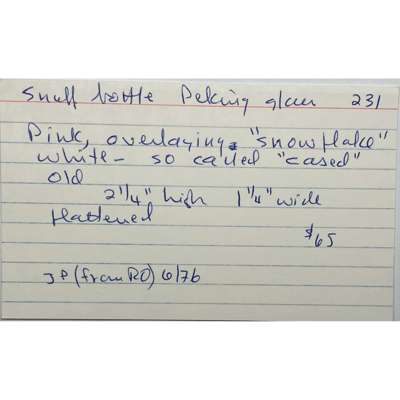 Snuff bottle Peking glass 231
Pink, overlaying "snowflake"
white - so called "cased"
old
2 1/4" high 1 1/4" wide
flattened
$65
JP (from RO) 6/76